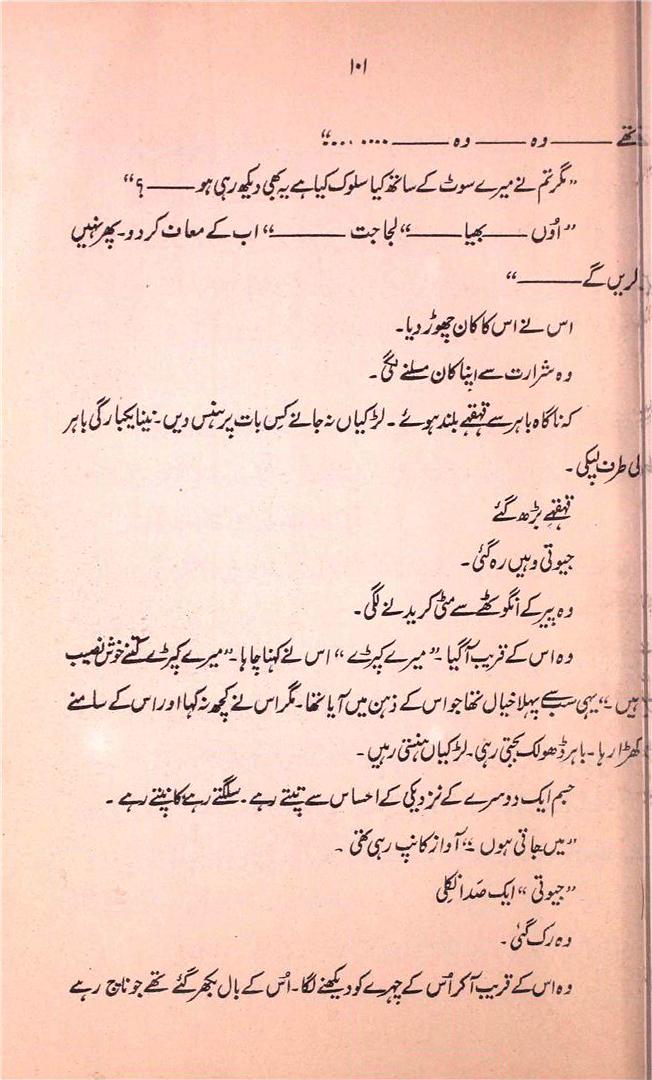 ۱۰۱
تھے ——— وہ ——— وہ ——— ........“
”مگر تم نے میرے سوٹ کے ساتھ کیا سلوک کیا ہے یہ بھی دیکھ رہی ہو ——— ؟“
”اوُں ——— بھیا ———“ لجاجت ———“ اب کے معاف کر دو۔ پھر نہیں
کریں گے ———“
اس نے اس کا کان چھوڑ دیا۔
وہ شرارت سے اپنا کان مسلنے لگی۔
کہ ناگاہ باہر سے قہقہے بلند ہوئے۔ لڑکیاں نہ جانے کس بات پر ہنس دیں۔ نینا یکبارگی باہر
کی طرف لپکی۔
قہقہے بڑھ گئے
جیوتی وہیں رہ گئی۔
وہ پیر کے انگوٹھے سے مٹی کریدنے لگی۔
وہ اس کے قریب آگیا۔ ”میرے کپڑے“ اس نے کہنا چاہا۔ ”میرے کپڑے کتنے خوش نصیب
ہیں۔“ یہی سب سے پہلا خیال تھا جو اس کے ذہن میں آیا تھا۔ مگر اس نے کچھ نہ کہا اور اس کے سامنے
کھڑا رہا۔ باہر ڈھولک بجتی رہی۔ لڑکیاں ہنستی رہیں۔
جسم ایک دوسرے کے نزدیکی کے احساس سے تپتے رہے۔ سلگتے رہے، کانپتے رہے۔
”میں جاتی ہوں۔“ آواز کانپ رہی تھی۔
”جیوتی“ ایک صَدا نکلی
وہ رک گئی۔
وہ اس کے قریب آکر اُس کے چہرے کو دیکھنے لگا۔ اُس کے بال بکھر گئے تھے جو ناچ رہے